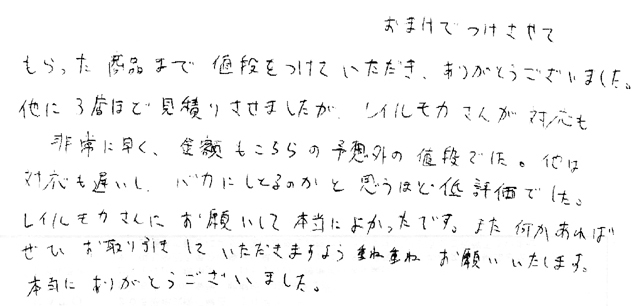 おまけでつけさせて
もらった商品まで値段をつけていただき、ありがとうございました。
他に3店ほど見積りさせましたが、レイルモカさんが対応も
非常に早く、金額もこちらの予想外の値段でした。他は
対応も遅いし、バカにしとるのかと思うほど低評価でした。
レイルモカさんにお願いして本当によかったです。また何かあれば
ぜひお取り引きしていただきますよう重ね重ねお願いいたします。
本当にありがとうございました。